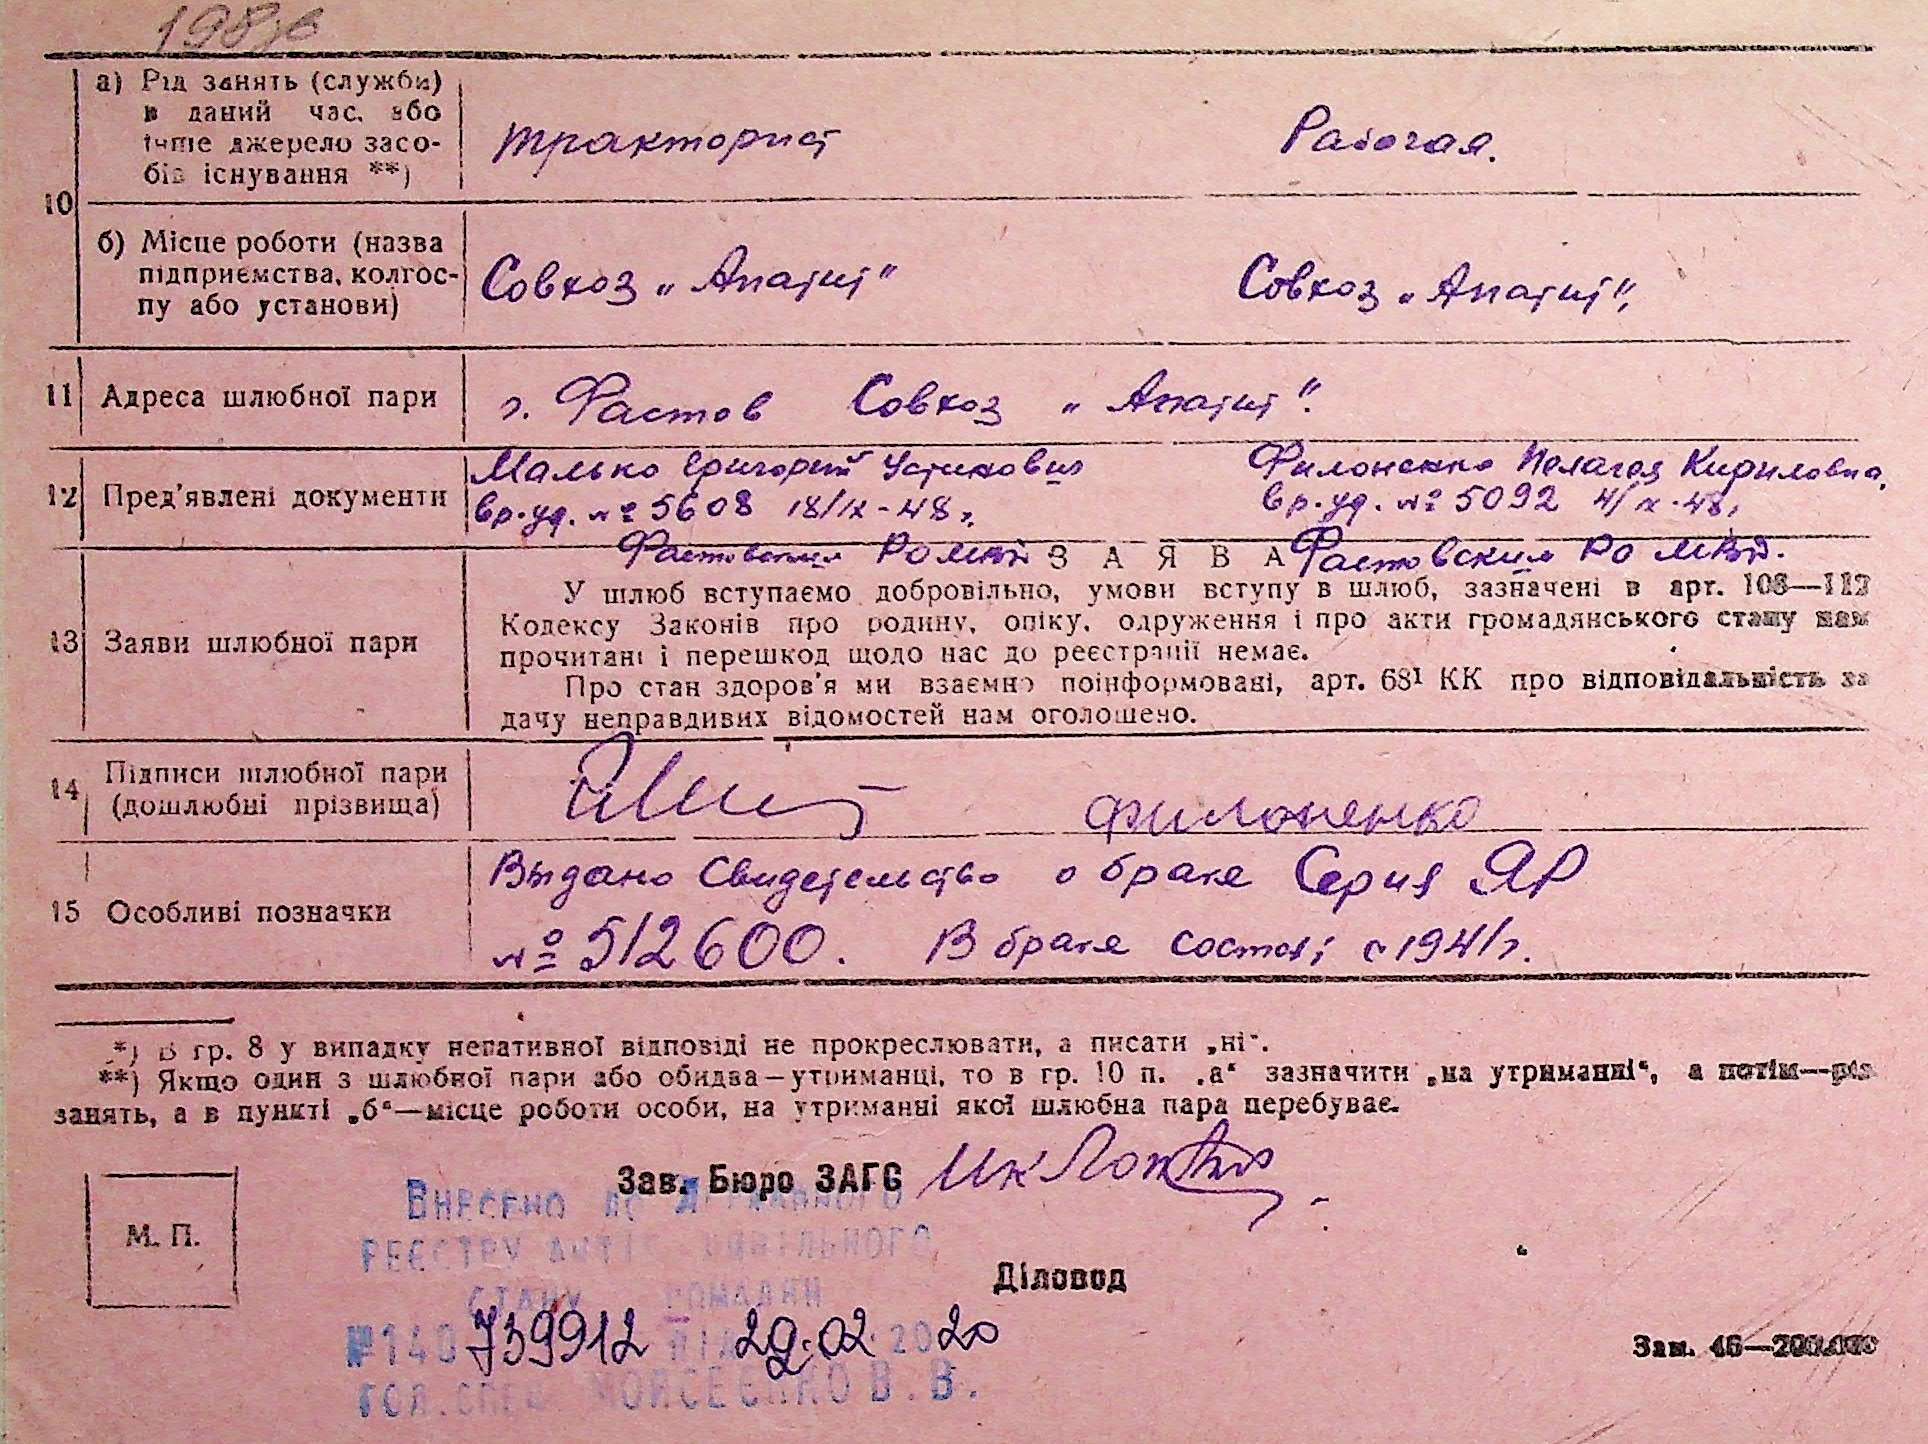 а) Рід занять (служби) в даний час, або інше джерело засобів існування **)
тракторист
Рабочая.
10
б) Місце роботи (назва підприємства, колгоспу або установи)
Совхоз „Апатит"
Совхоз „Апатит",
11 Адреса шлюбної пари
г. Фастов Совхоз „Апатит".
12 Пред'явлені документи
Малько Григорий Устинович
вр. уд. № 5608 18/IX-48 г.
Фастовским РО МВД
Филоненко Пелагея Кириловна.
вр. уд. № 5092 4/IX-48,
Фастовским РО МВД.
ЗАЯВА
13 Заяви шлюбної пари
У шлюб вступаємо добровільно, умови вступу в шлюб, зазначені в арт. 108—112
Кодексу Законів про родину, опіку, одруження і про акти громадянського стану нам
прочитані і перешкод щодо нас до реєстрації немає.
Про стан здоров'я ми взаємно поінформовані, арт. 68¹ КК про відповідальність за
дачу неправдивих відомостей нам оголошено.
14 Підписи шлюбної пари (дошлюбні прізвища)
Филоненко
15 Особливі позначки
Выдано Свидетельство о браке Серия ЯР
№ 512600. В браке состоят с 1941 г.
*) В гр. 8 у випадку негативної відповіді не прокреслювати, а писати „ні".
**) Якщо один з шлюбної пари або обидва—утриманці, то в гр. 10 п. „а" зазначити „на утриманні", а потім—рід
занять, а в пункті „б"—місце роботи особи, на утриманні якої шлюбна пара перебуває.
Зав. Бюро ЗАГС
М. П.
Внесено до Державного
реєстру актів цивільного
стану громадян
Діловод
№140 739912 від 29.02.2020
гол.спец. Мойсеєнко В.В.
Зам. 46—200.000